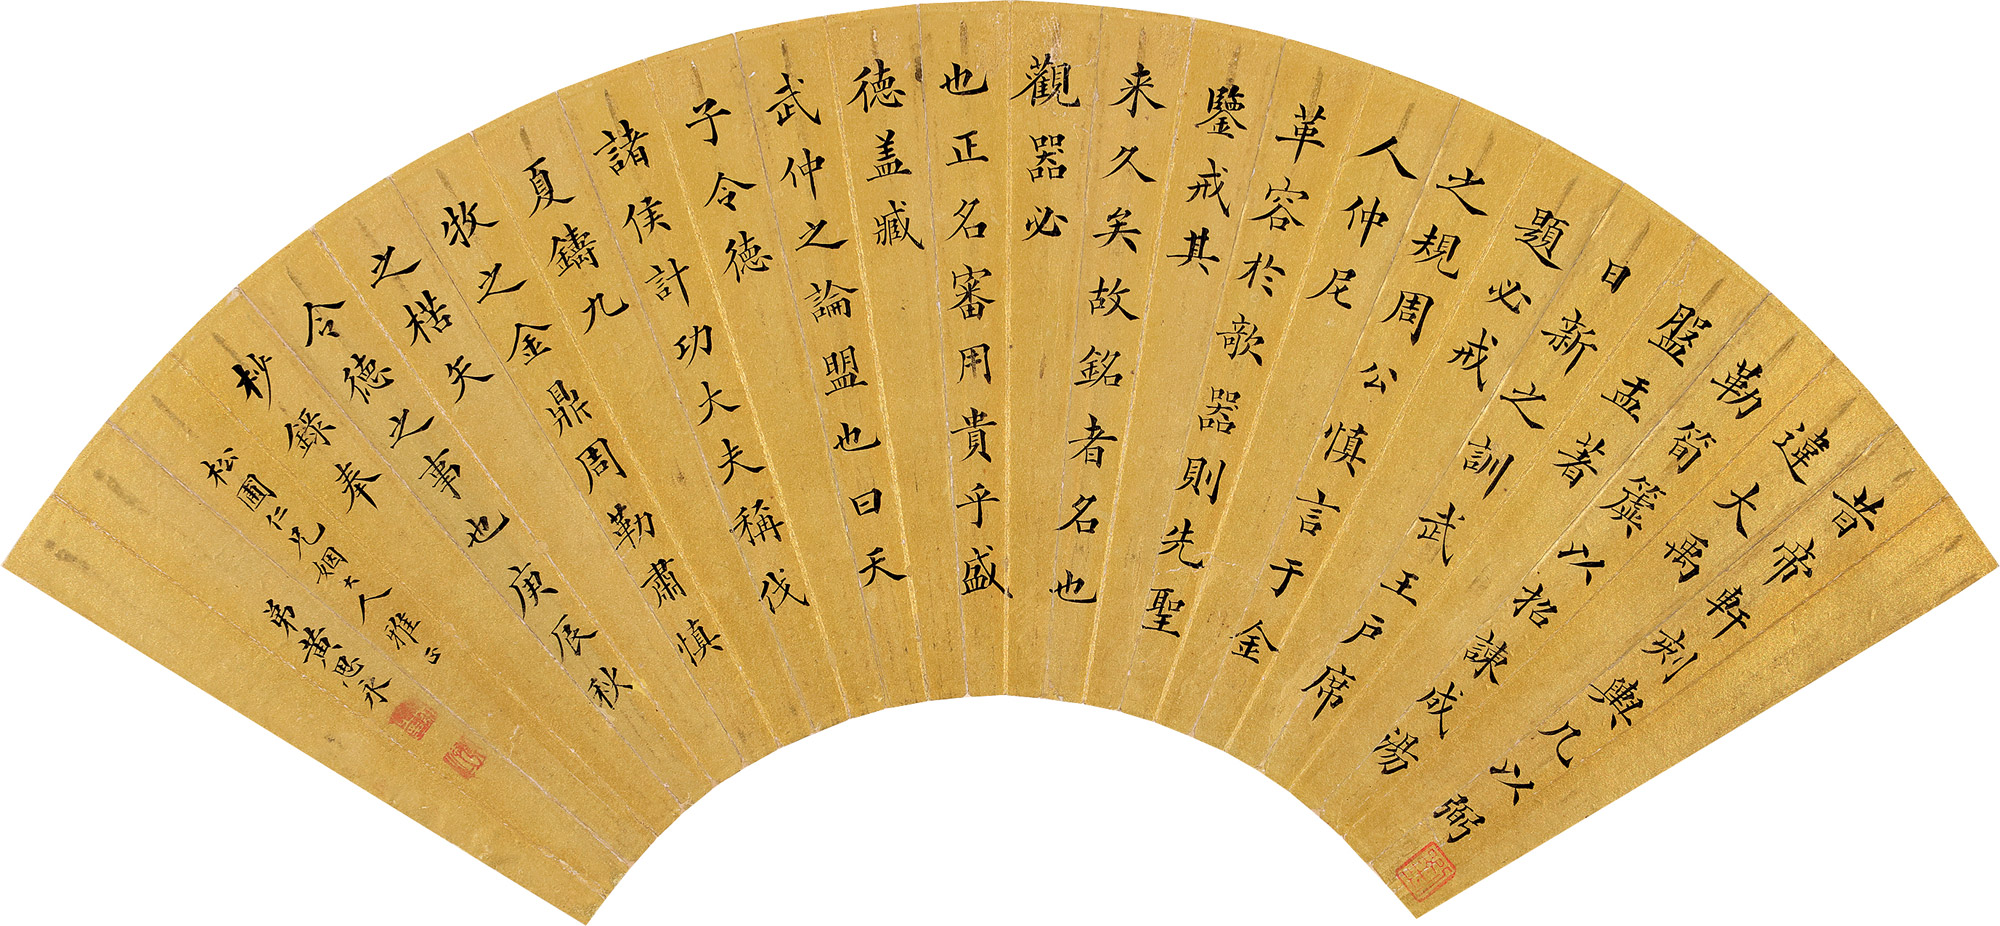 昔帝軒刻輿几以弼
違大禹
勒筍簴以招諫成湯
盤盂著
日新之訓武王戶席
題必戒
之規周公慎言于金
人仲尼
革容於欹器則先聖
鑒戒其
来久矣故銘者名也
觀器必
也正名審用貴乎盛
德盖臧
武仲之論盟也曰天
子令德
諸侯計功大夫稱伐
夏鑄九
牧之金鼎周勒肅慎
之楛矢
令德之事也庚辰秋
杪錄奉
松圃仁兄姻大人雅正
弟黃思永